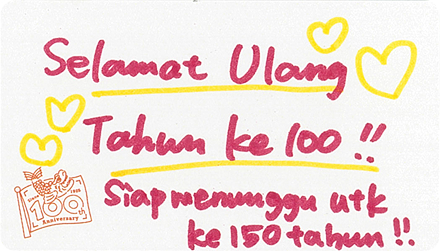 Selamat Ulang
Tahun ke 100 !!
Siap menunggu utk
ke 150 tahun !!
Since 1908
100th
Anniversary